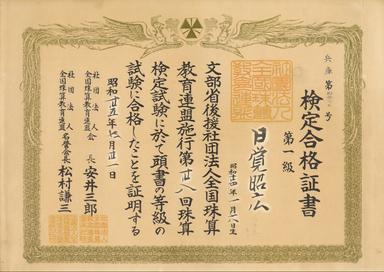 兵庫 第 号
検定合格証書
第一級
日覚昭広
昭和十四年一月八日生
文部省後援社団法人全国珠算
教育連盟施行第廿八回珠算
検定試験に於て頭書の等級の
試験に合格したことを証明する
昭和廿五年 月廿一日
社団法人
全国珠算教育連盟会長 安井三郎
社団法人
全国珠算教育連盟名誉会長 松村謙三